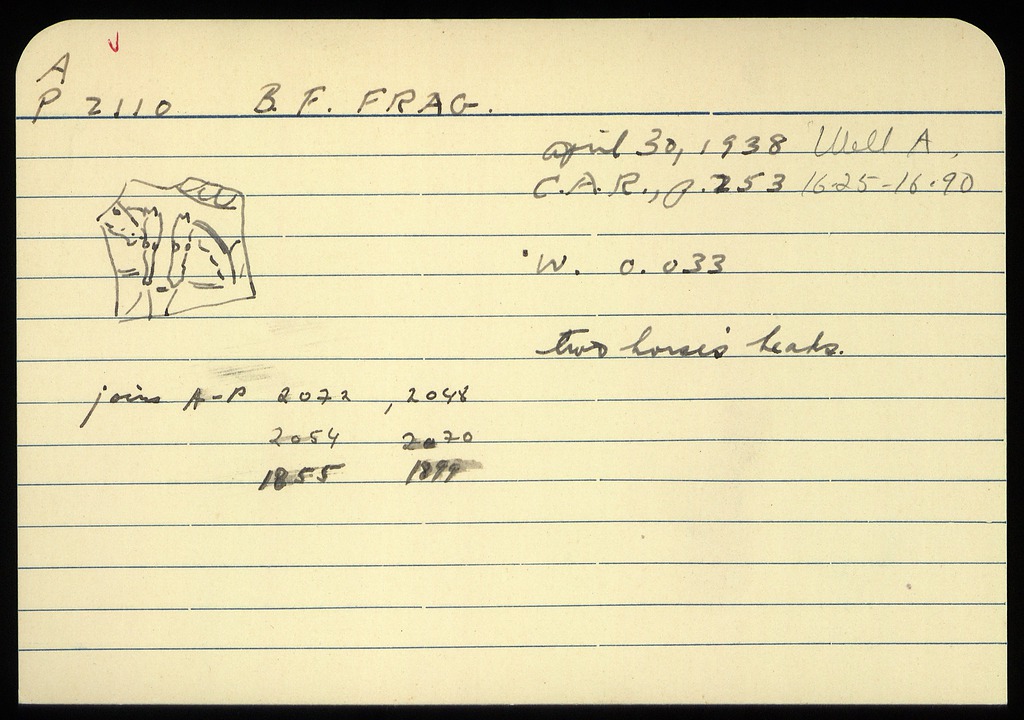 A
P 2110 B. F. FRAG.
april 30, 1938 Well A.
C.A.R., p. 253 16.25-16.90
W. 0.033
two horses' heads.
joins A-P 2072, 2048
2054 2070
1855 1899